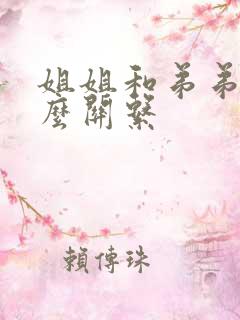 姐姐和弟弟
麼關繫
賴傳珠